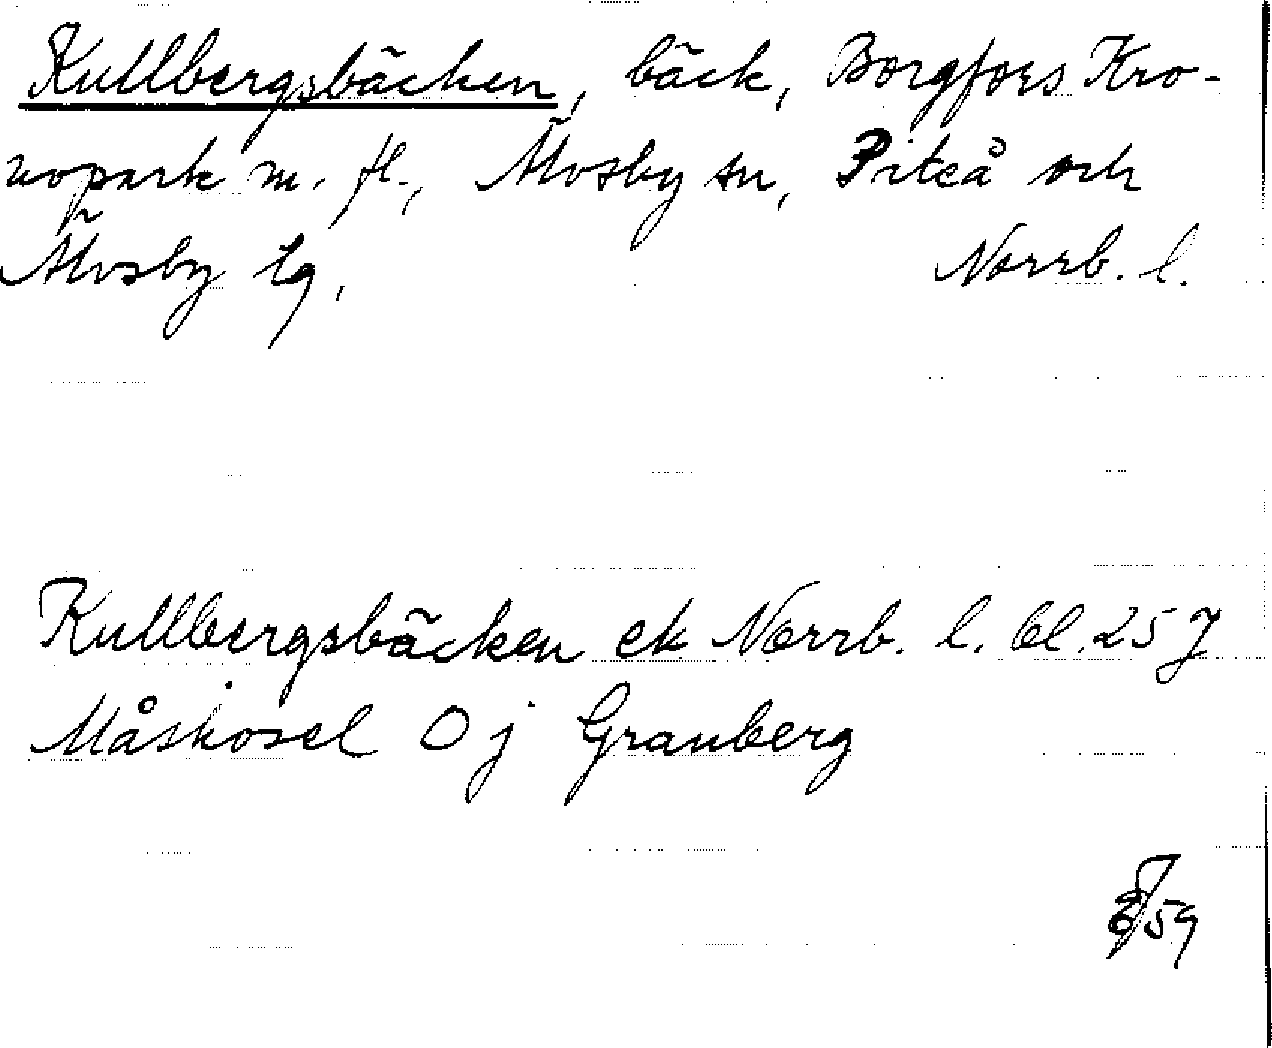 Kullbergsbäcken, bäck, Borgfors Kro-
nopark m. fl., Älvsby sn, Piteå och
Älvsby tg, Norrb. l.
Kullbergsbäcken ek Norrb. l. bl. 25 J
Måskosel O j Granberg
59